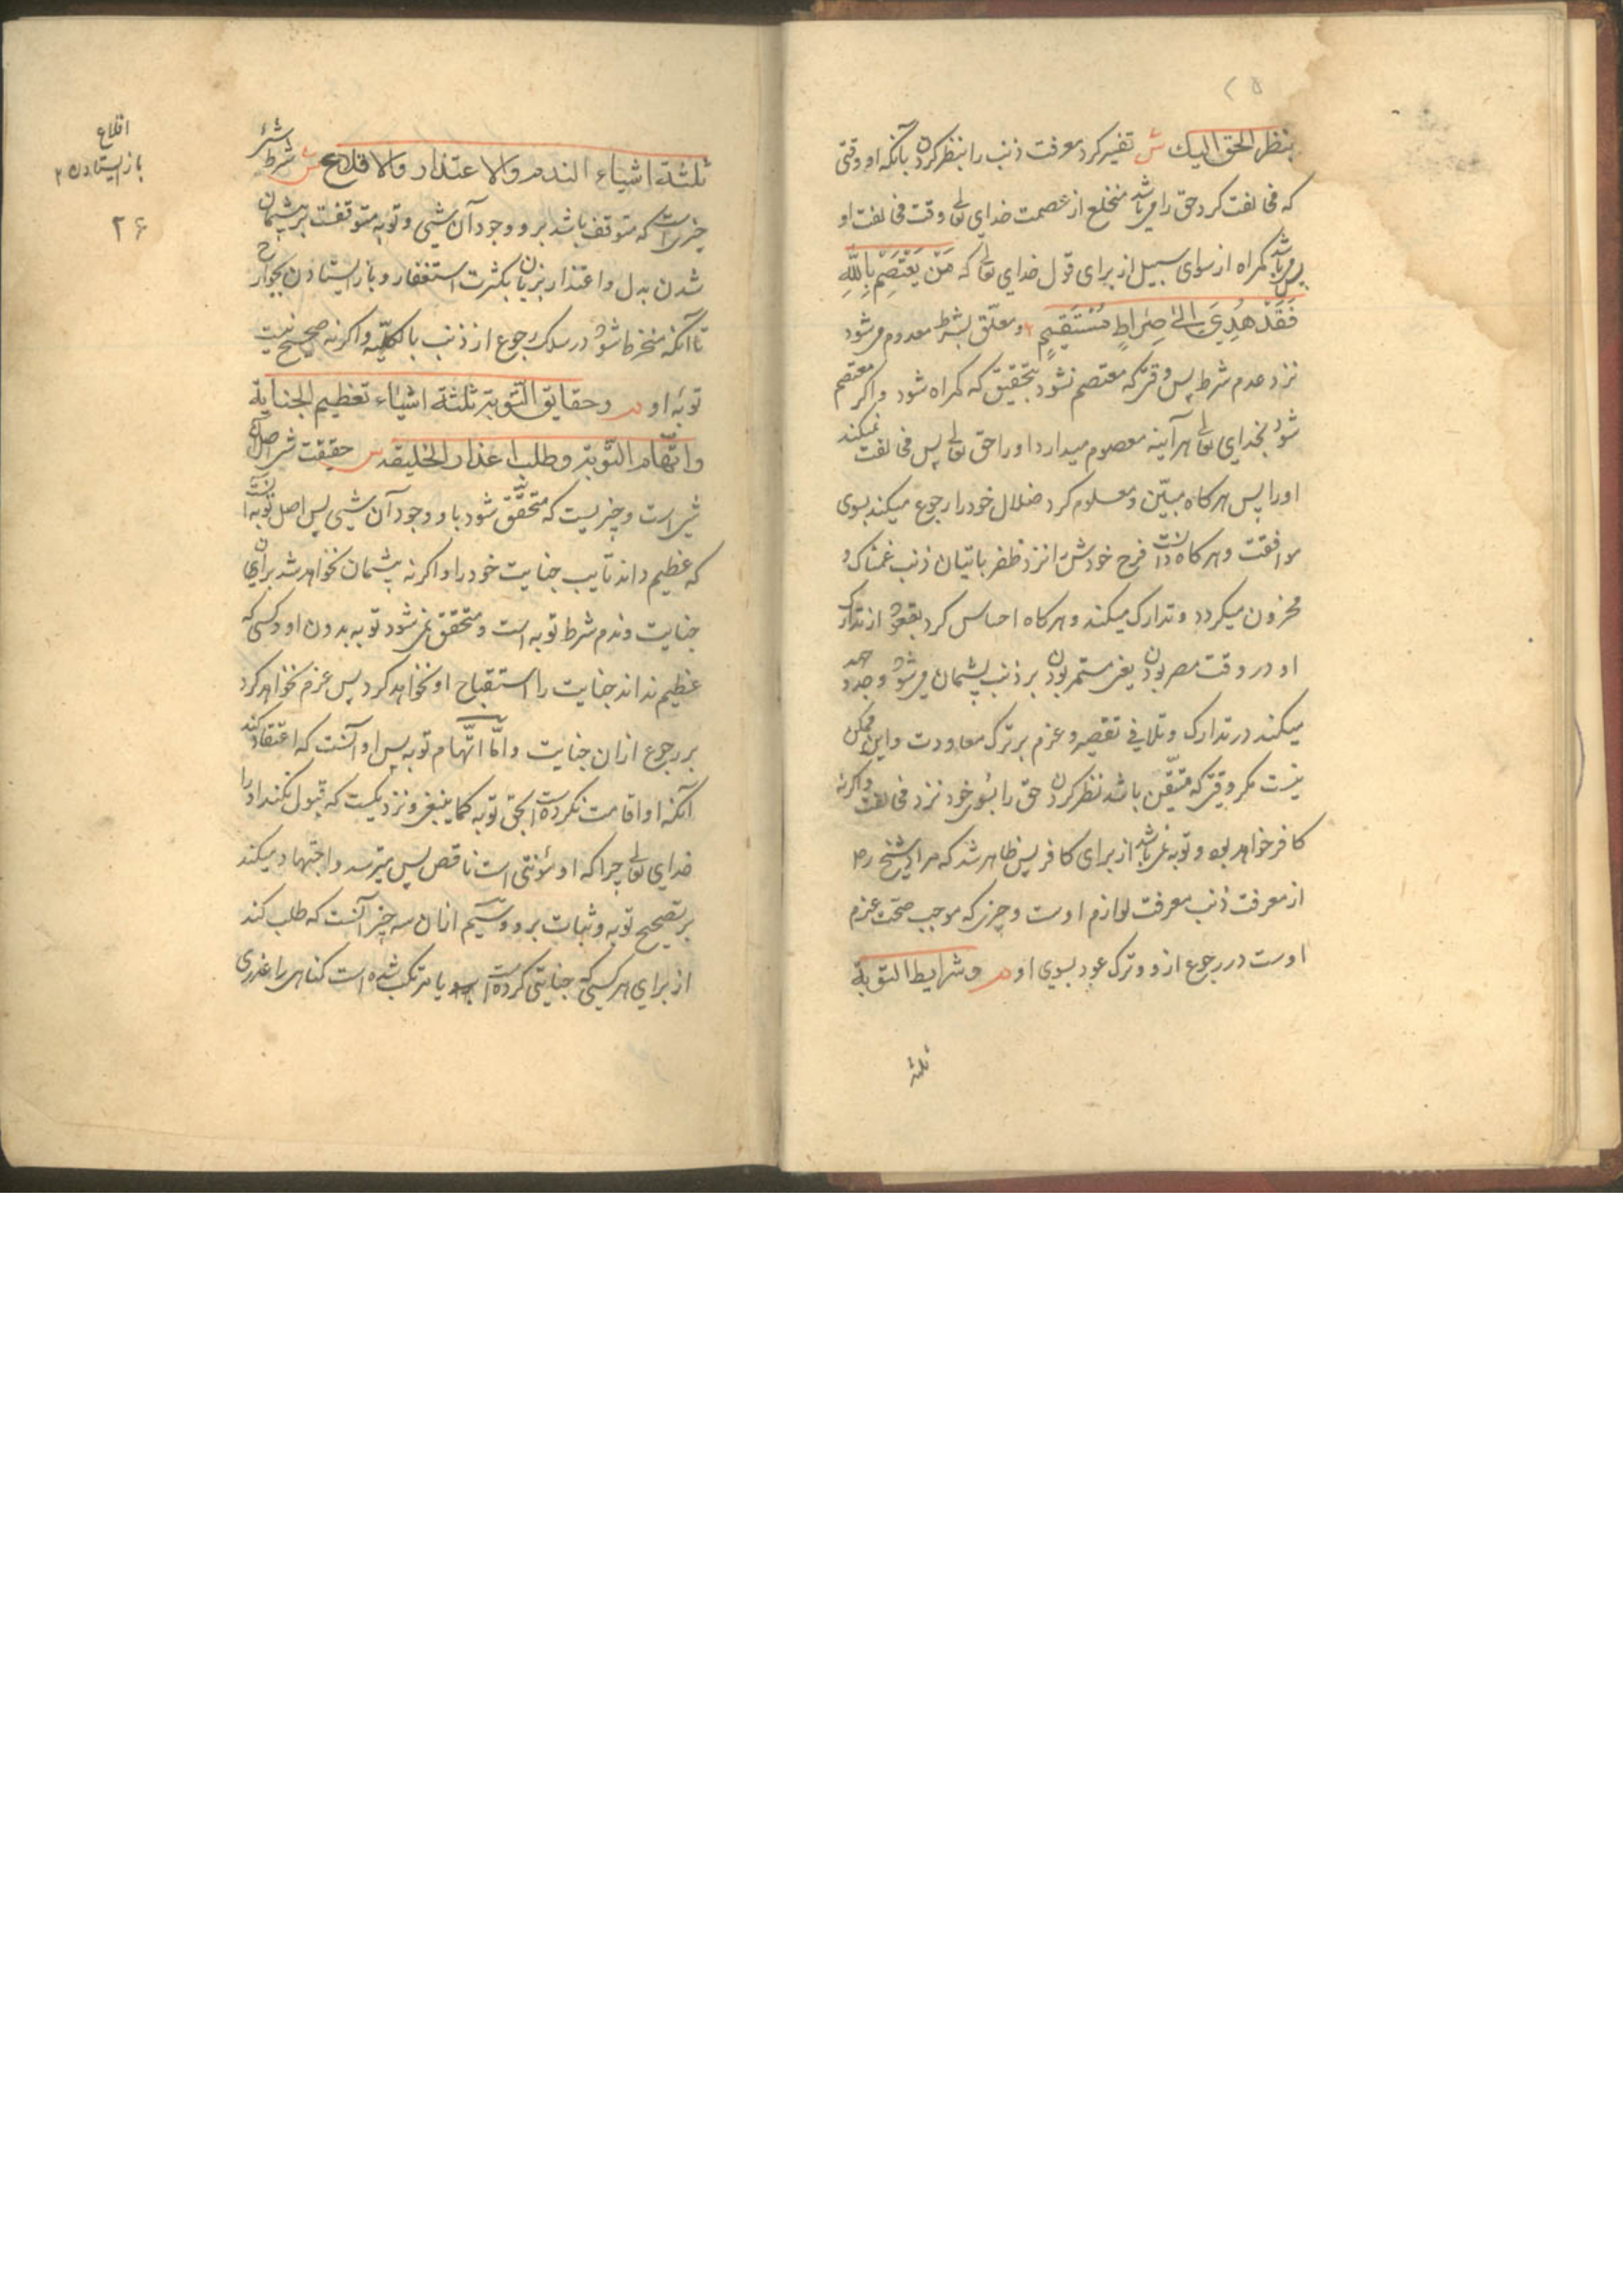 ۲۵
بنظر الحق الیك ش تفسیر کرد معرفت ذنب را بنظر کردن بآنکه او وقتی
که مخالفت کرد حق را میباشد منخلع از عصمت خدای تعالی وقت مخالفت او
پس میباشد کمراه از سوای سبیل از برای قول خدای تعالی که مَنْ یَعْتَصِمْ بِاللّٰهِ
فَقَدْ هُدِیَ اِلیٰ صِرَاطٍ مُسْتَقِیمٍ و معلّق بشرط معدوم میشود
نزد عدم شرط پس وقتی که معتصم نشود بتحقیق که کمراه شود و اکر معتصم
شود بخدای تعالی هرآینه معصوم میدارد او را حق تعالی پس مخالفت نمیکند
او را پس هرکاه مبیّن و معلوم کرد ضلال خود را رجوع میکند بسوی
موافقت و هرکاه دانست فرح خودش را نزد ظفر باتیان ذنب غمناک و
محزون میکردد و تدارک میکند و هرکاه احساس کرد بقعود از تدارک
او در وقت مصر بودن یعنی مستمر بودن بر ذنب پشیمان میشود و جد و جهد
میکند در تدارک و تلافی تقصیر و عزم بر ترک معاودت و این ممکن
نیست مکر وقتی که متیقّن باشد نظر کردن حق را بسوی خود نزد مخالفت و اکر نه
کافر خواهد بود و توبه نمیباشد از برای کافر پس ظاهر شد که مراد شیخ ره
از معرفت ذنب معرفت لوازم اوست و چیزی که موجب صحّت عزم
اوست در رجوع ازو و ترک عود بسوی او م وشرایط التوبة
ثلثة
ثلثة اشیاء الندم والاعتذار والاقلاع ش شرط شئ
چیزیست که متوقف باشد برو وجود آن شیی و توبه متوقفست بر پشیمان
شدن بدل و اعتذار بزبان بکثرت استغفار و باز ایستادن بجوارح
تا آنکه منخرط شود در سلک رجوع از ذنب بالکلّیه و اکر نه صحیح نیست
توبهٔ او م وحقایق التّوبة ثلثة اشیاء تعظیم الجنایة
واتّهام التّوبة وطلب اعذار الخلیقه ش حقیقت شئ اصل
شئ است و چیزیست که متحقّق شود باو وجود آن شیی پس اصل توبه آنست
که عظیم داند تایب جنایت خود را و اکر نه پشیمان نخواهد شد برای آن
جنایت و ندم شرط توبه است و متحقق نمیشود توبه بدون او و کسی که
عظیم نداند جنایت را استقباح او نخواهد کرد پس عزم نخواهد کرد
بر رجوع ازان جنایت و امّا اتّهام توبه پس او آنست که اعتقاد کند
آنکه او اقامت نکرده است بحق توبه کما ینبغی و نزدیکست که قبول نکند او را
خدای تعالی چرا که او مؤنتی است ناقص پس میترسد و اجتهاد میکند
بر تصحیح توبه و ثبات برو و سیّم ازان سه چیز آنست که طلب کند
از برای هر کسی که جنایتی کرده است یا مرتکب شده است کناهی را عذری
اقلاع
باز ایستادن ۲
۲۶